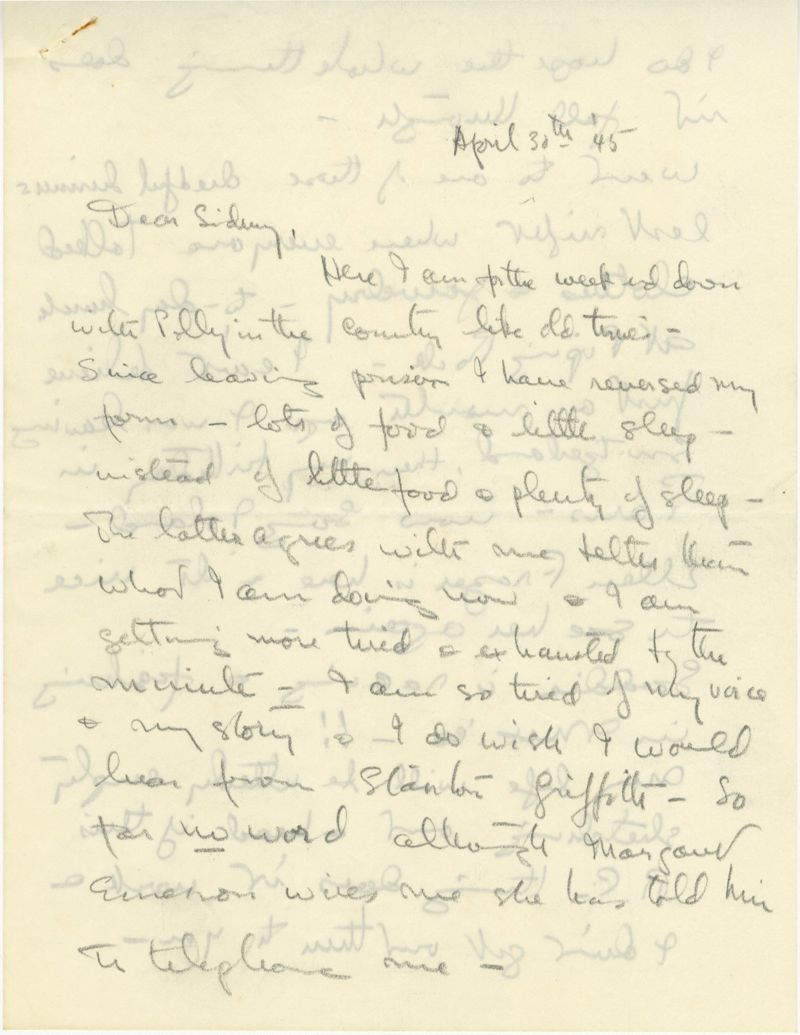 April 30th '45
Dear Sidney,
Here I am for the week end down
with Polly in the country like old times -
Since leaving prison I have reversed my
form - lots of food & little sleep -
instead of little food & plenty of sleep -
The latter agrees with me better than
what I am doing now & I am
getting more tired & exhausted by the
minute - I am so tired of my voice
& my story & I do wish I would
hear from Stanton Griffith - So
far no word although Margaret
Emerson wires me she has told him
to telephone me -